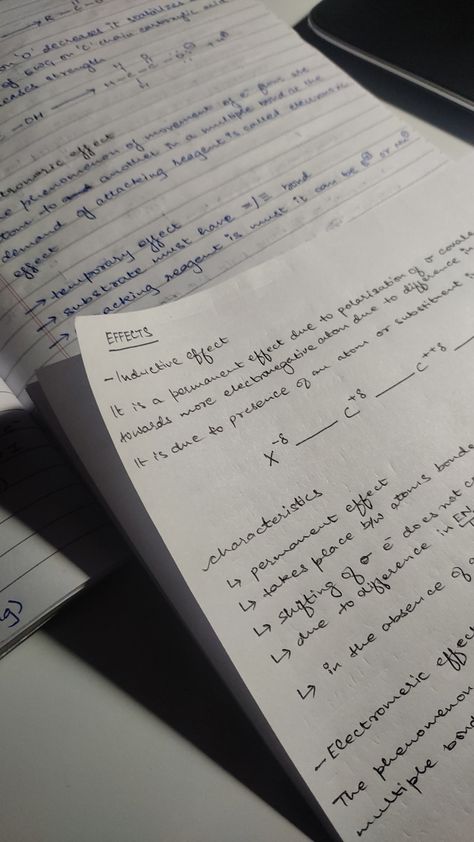 R-C-O
on 'O' decreases it stabilizes
of EWG on 'C' chain carboxylic acid
strength
-OH → H-C-C-
effect
phenomenon of movement of e⁻ from one
atom to another in a multiple bond at the
demand of attacking reagent is called electromeric
effect
→ temporary effect
→ substrate must have =/≡ bond
→ attacking reagent is must it can be E⊕ or Nu⊖
EFFECTS
- Inductive effect
It is a permanent effect due to polarization of σ covale
towards more electronegative atom due to difference in
It is due to presence of an atom or substituent
X⁻ᵟ — C⁺ᵟ — C⁺⁺ᵟ —
characteristics
↳ permanent effect
↳ takes place b/w atoms bonde
↳ shifting of σ e⁻ does not c
↳ due to difference in EN
↳ in the absence of
- Electromeric effec
The phenomenon
multiple bond